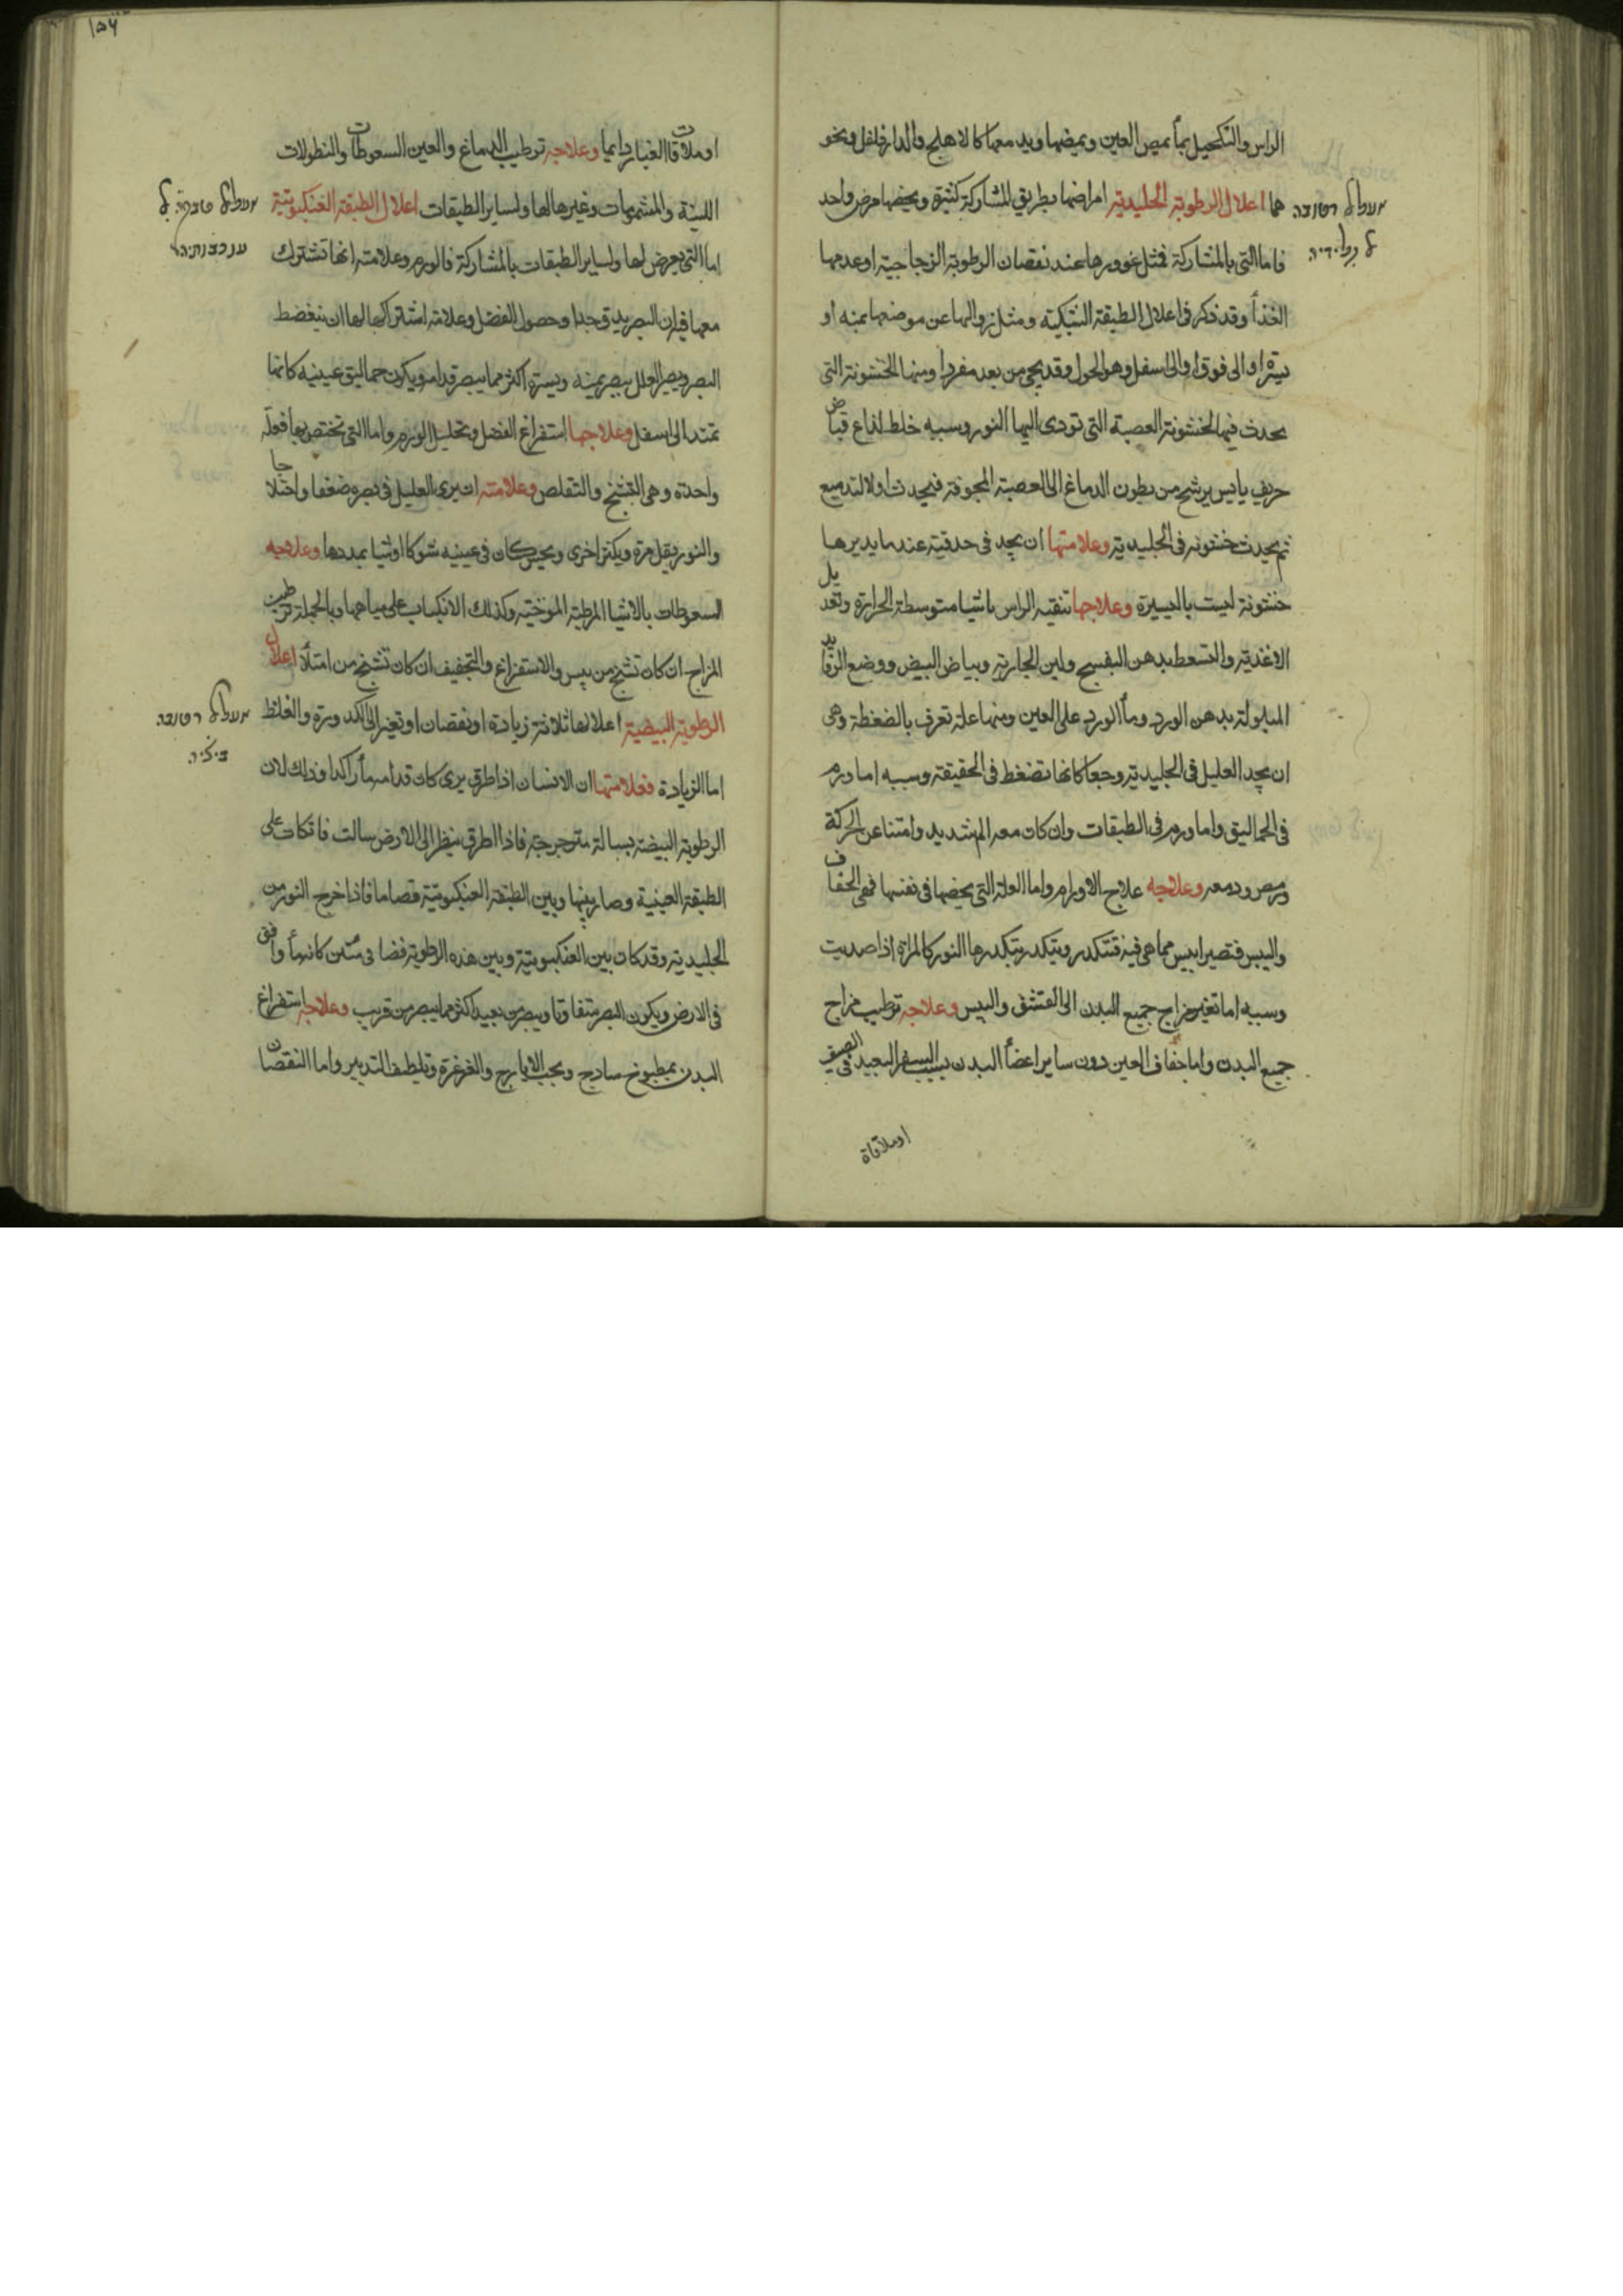 الراس والتكحيل بما يمص العين ويمضها ويدمعها كالاهليلج والدارفلفل ونحو
هما اعلال الرطوبة الجليدية امراضها بطريق المشاركة كثيرة ويخصها مرض واحد
فاما التى بالمشاركة فمثل غوورها عند نقصان الرطوبة الزجاجية او عدمها
الغذأ وقد ذكر فى اعلال الطبقة الشبكية ومثل زوالها عن موضعها يمنه او
يسرة او الى فوق او الى اسفل وهو الحول وقد يجى من بعد مفردا ومنها الخشونة التى
يحدث فيها لخشونة العصبة التى تودى اليها النور وسببه خلط لذاع قباض
حريف يابس يرشح من بطون الدماغ الى العصبة المجوفة فيحدث اولا لتدميع
ثم يحدث خشونه فى الجليدية وعلامتها ان يجد فى حدقتيه عندما يديرها
خشونة ليست باليسيرة وعلاجها تنقيه الراس باشيا متوسطة الحرارة وتعديل
الاغذية والتسعط بدهن البنفسج ولبن الجارية وبياض البيض ووضع الرفايد
المبلولة بدهن الورد ومأ الورد على العين ومنها علة تعرف بالضغطة وهى
ان يجد العليل فى الجليدية وجعا كانها تضغط فى الحقيقة وسببه اما ورم
فى الحماليق واما ورم فى الطبقات وان كان معه الم شديد وامتناع عن الحركة
ورمص ودمعه وعلاجه علاج الاورام واما العلة التى يخصها فى نفسها فهى الجفاف
واليبس فتصير ايبس مما هى فيه فتتكدر ويتكدر بتكدرها النور كالمراة اذا صديت
وسببه اما تغير مزاج جميع البدن الى القشف واليبس وعلاجه ترطيب مزاج
جميع البدن واما جفاف العين دون ساير اعضأ البدن بسبب السفر البعيد فى الصيف
او ملاقاة
אעלאל רטובה
גלידיה
١٥٦
او ملاقات الغبار دايما وعلاجه ترطيب الدماغ والعين السعوطات والنطولات
اللينة والمشمومات وغيرها لها ولساير الطبقات اعلال الطبقة العنكبوتية
اما التى يعرض لها ولساير الطبقات بالمشاركة فالورم وعلامته انها تشترك
معها فى ان البصر يدق جدا وحصول الفضل وعلامة اشتراكها لها ان ينضغط
البصر ويصير العليل يبصر يمنه ويسرة اكثر مما يبصر قدامه ويكون حماليق عينيه كانها
تمتد الى اسفل وعلاجها استفراغ الفضل وتحليل الورم واما التى تختص بها فعلّة
واحدة وهى التشنج والتقلص وعلامته ان يرى العليل فى بصره ضعفا واختلاجا
والنور يقل مرة ويكثر اخرى ويحس كان فى عينيه شوكا او شيا يمددها وعلاجه
السعوطات بالاشيا المرطبة المرخية وكذلك الانكباب على مياهها وبالجملة ترطيب
المزاج ان كان تشنج من يبس والاستفراغ والتجفيف ان كان تشنج من امتلأ اعلال
الرطوبة البيضية اعلالها ثلاثة زيادة او نقصان او تغير الى الكدورة والغلظ
اما الزيادة فعلامتها ان الانسان اذا اطرق يرى كان قدامه مأ راكدا وذلك لان
الرطوبة البيضة بسالة مترجرجة فاذا اطرق ينظر الى الارض سالت فاتكات على
الطبقة العينية وصار بينها وبين الطبقة العنكبوتية فضا ما فاذا خرج النور من
الجليدية وقد كان بين العنكبوتية وبين هذه الرطوبة فضا كانه مأ واقف
فى الارض ويكون البصر متفاوتا ويبصر من بعيد اكثر مما يبصر من قريب وعلاجه استفراغ
البدن بمطبوخ ساذج وبحب الايارج والغرغرة وتلطيف التدبير واما النقصان
אעלאל טבקה
ענכבותיה
אעלאל רטובה
ביציה